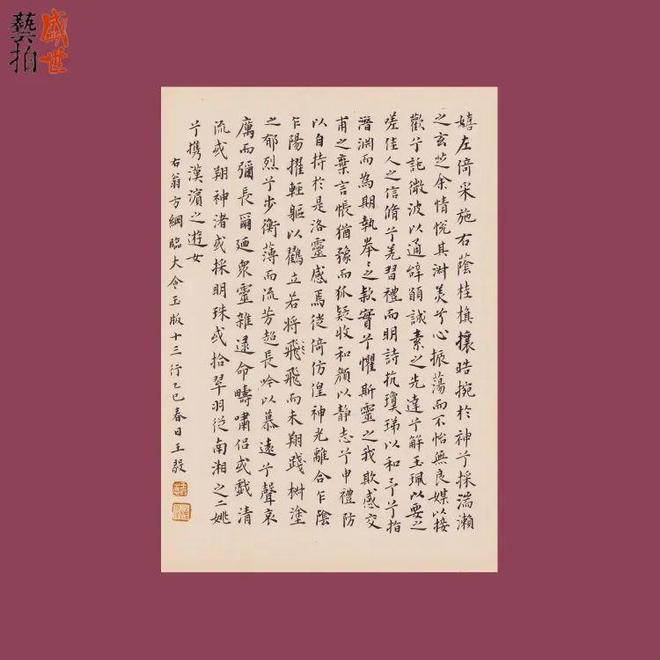 盛世
藝拍
嬉左倚采旄右蔭桂旗攘皓捥於神兮採湍瀨
之玄芝余情悅其淑美兮心振蕩而不怡無良媒以接
歡兮託微波以通辭願誠素之先達兮解玉珮以要之
嗟佳人之信脩兮羌習禮而明詩抗瓊珶以和予兮指
潛淵而為期執拳〻之款實兮懼斯靈之我欺感交
甫之棄言悵猶豫而狐疑收和顏以靜志兮申禮防
以自持於是洛靈感焉徙倚仿偟神光離合乍陰
乍陽擢輕軀以鶴立若將飛飛而未翔踐椒塗
之郁烈兮步衡薄而流芳超長吟以慕遠兮聲哀
厲而彌長爾迺衆靈雜遝命疇嘯侶或戲清
流或翔神渚或採明珠或拾翠羽從南湘之二姚
兮攜漢濱之遊女
右翁方綱臨大令玉版十三行乙巳春日王毅